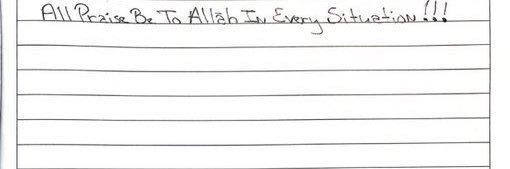 All Praise Be To Allāh In Every Situation!!!